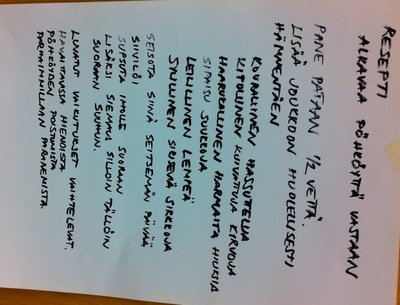 RESEPTI
ALKAVAA PÖHKÖYTTÄ VASTAAN
PANE PATAAN 1/2 VETTÄ.
LISÄÄ JOUKKOON HUOLELLISESTI
HÄMMENTÄEN
KOURALLINEN HASSUTTELUA
KIPOLLINEN KUIVATTUJA KIRVOJA
HAARUKALLINEN HARMAITA HIUKSIA
SIPAISU SUUKKOJA
LEILILLINEN LEMPEÄ
SYLILLINEN
SEISOTA SIINÄ SEITSEMÄN PÄIVÄÄ
SIIVILÖI
SUPSUTA IHOLLE SUORAAN
LISÄKSI SIEMAILE SILLOIN TÄLLÖIN
SUORAAN SUUHUN.
LUVATUT VAIKUTUKSET VAIHTELEVAT.
HAVAITTAVISSA HIENOISTA
PÖHKÖYDEN POISTUMISTA
PARHAIMMILLAAN PARANEMISTA.